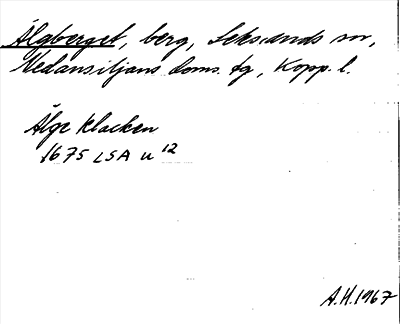 Älgberget, berg, Leksands sn,
Nedansiljans doms. tg, Kopp. l.
Älge klacken
1675 LSA u 12
A.H. 1967